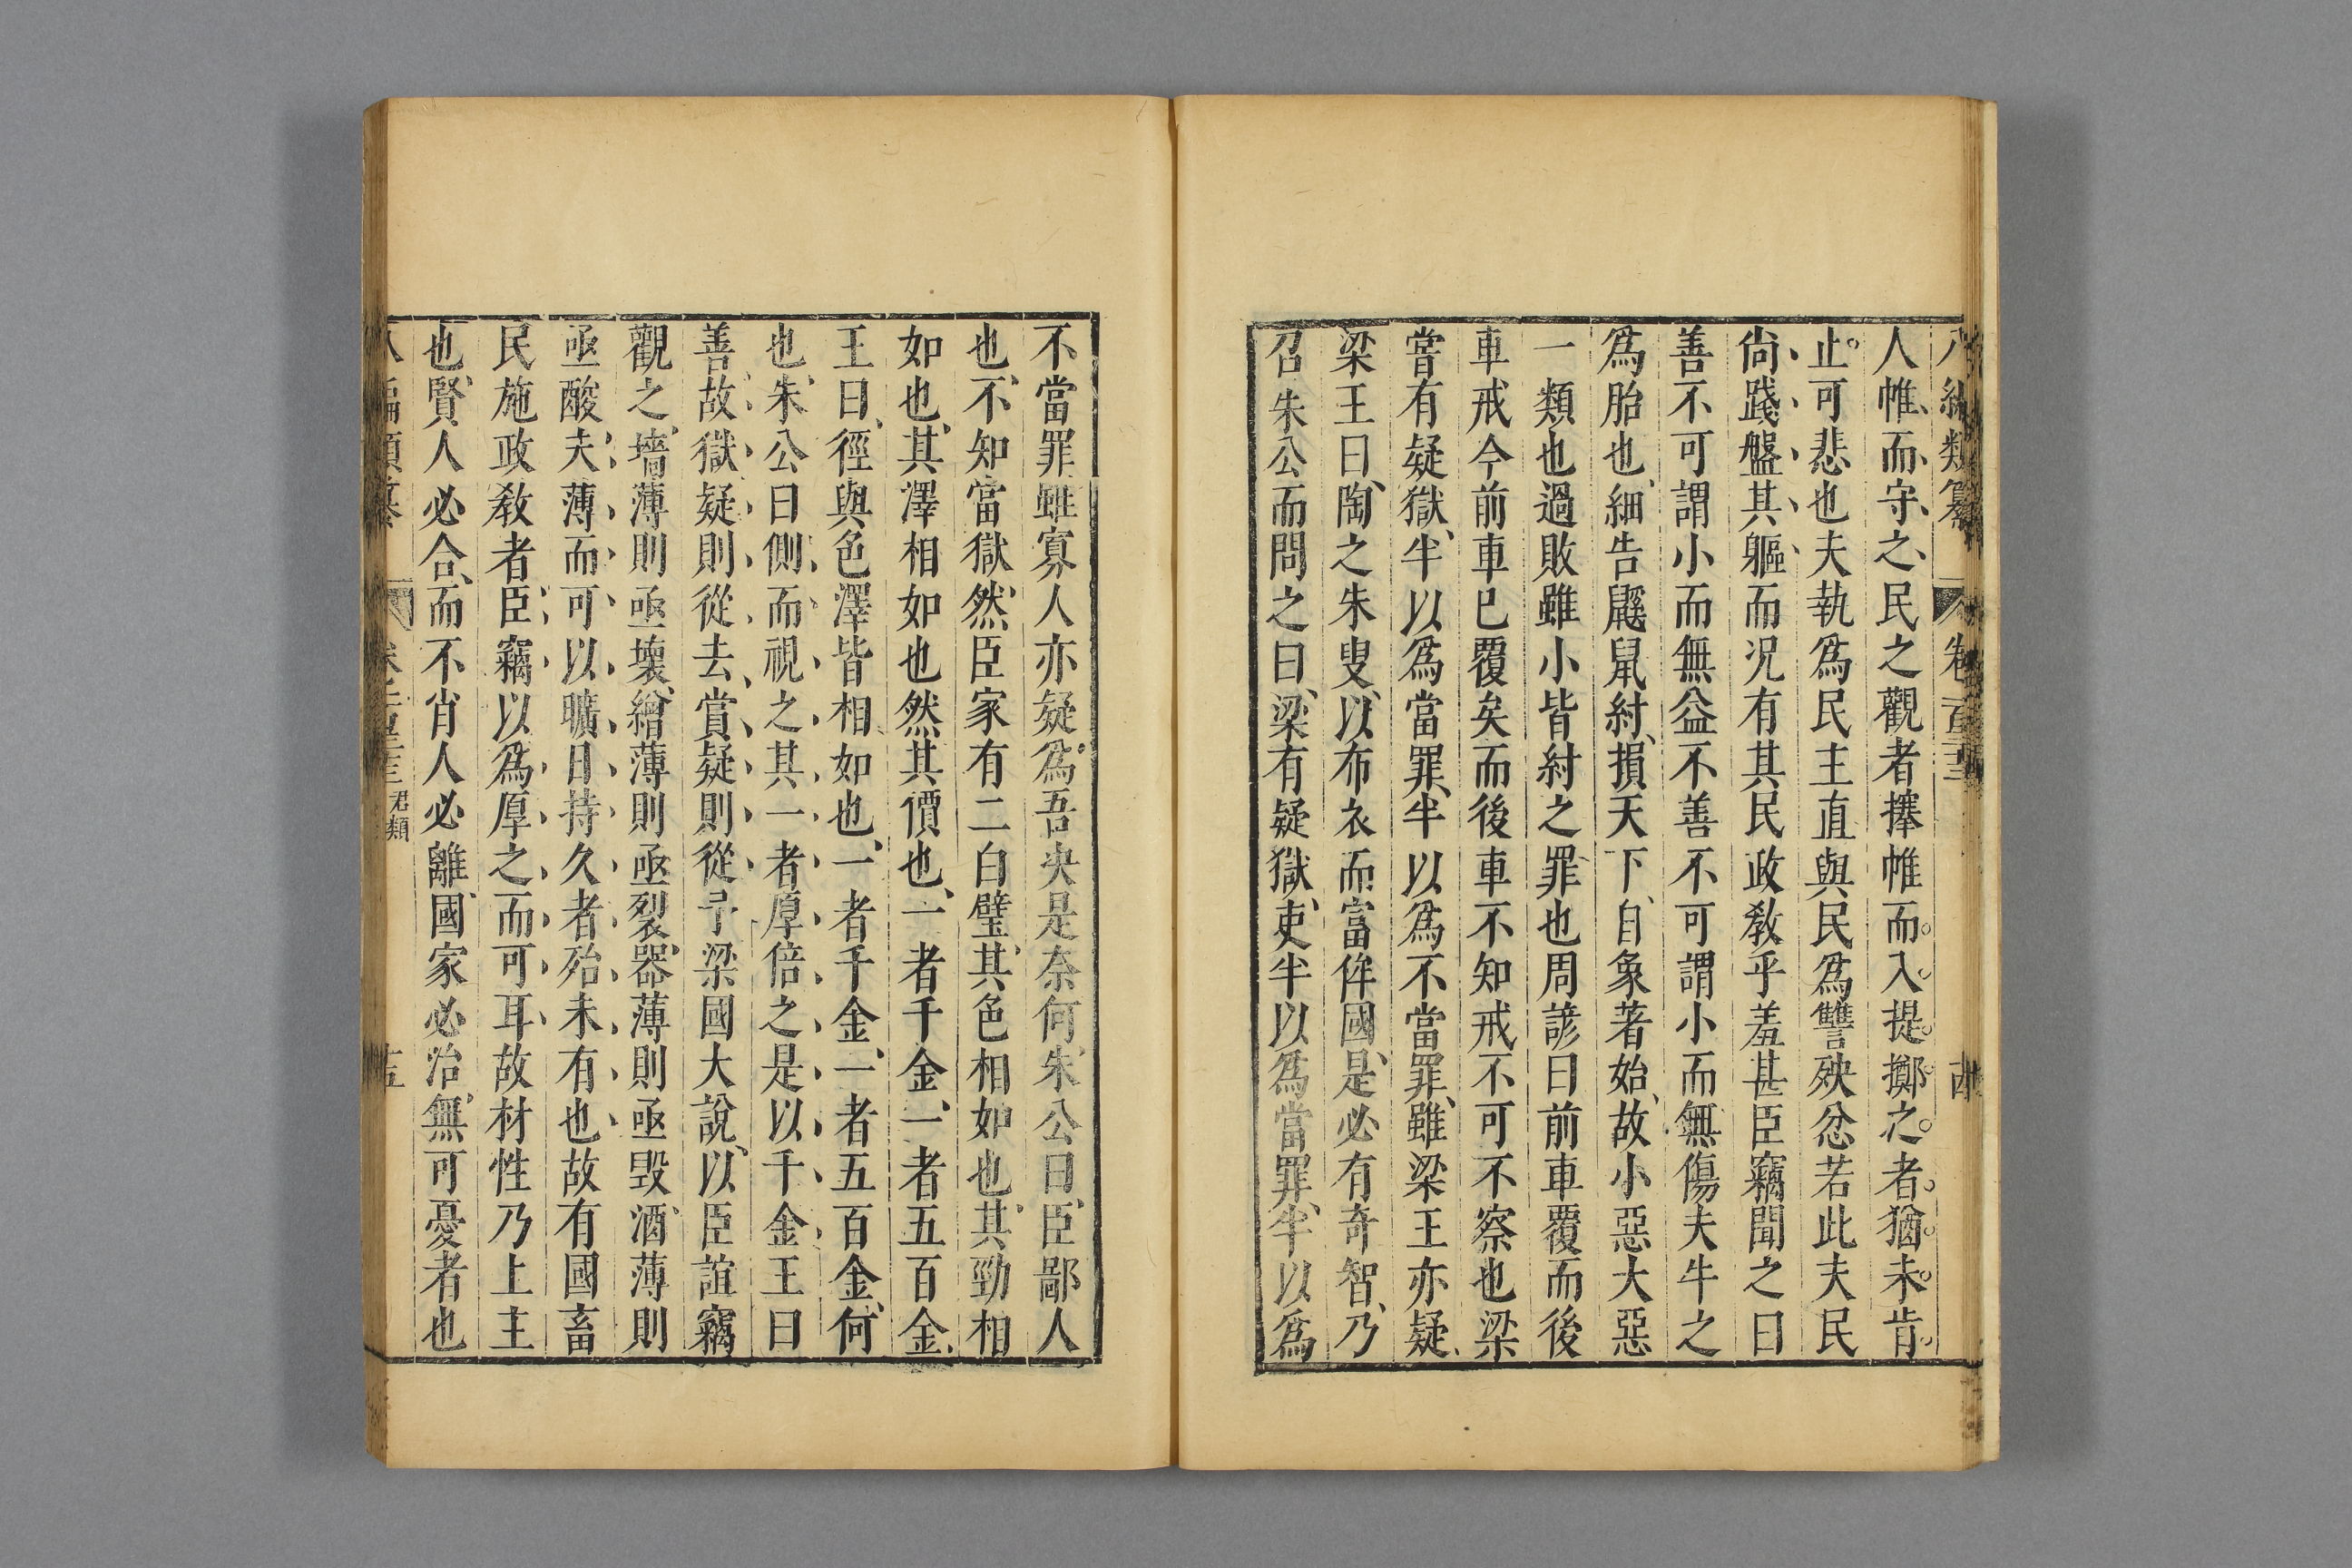 八編類纂 卷
人帷而守之民之觀者搴帷而入提擲之者猶未肯
止可悲也夫執為民主直與民為讐殃忿若此夫民
尙踐盤其軀而况有其民政教乎羞甚臣竊聞之曰
善不可謂小而無益不善不可謂小而無傷夫牛之
為胎也細告鼷鼠紂損天下自象著始故小惡大惡
一類也過敗雖小皆紂之罪也周諺曰前車覆而後
車戒今前車已覆矣而後車不知戒不可不察也梁
嘗有疑獄半以為當罪半以為不當罪雖梁王亦疑
梁王曰陶之朱叟以布衣而富侔國是必有奇智乃
召朱公而問之曰梁有疑獄吏半以為當罪半以為
不當罪雖寡人亦疑為吾決是奈何朱公曰臣鄙人
也不知當獄然臣家有二白璧其色相如也其勁相
如也其澤相如也然其價也一者千金一者五百金
王曰徑與色澤皆相如也一者千金一者五百金何
也朱公曰側而視之其一者厚倍之是以千金王曰
善故獄疑則從去賞疑則從予梁國大說以臣誼竊
觀之墻薄則亟壞繒薄則亟裂器薄則亟毀酒薄則
亟酸夫薄而可以曠日持久者殆未有也故有國畜
民施政教者臣竊以為厚之而可耳故材性乃上主
也賢人必合而不肖人必離國家必治無可憂者也
君類 十五